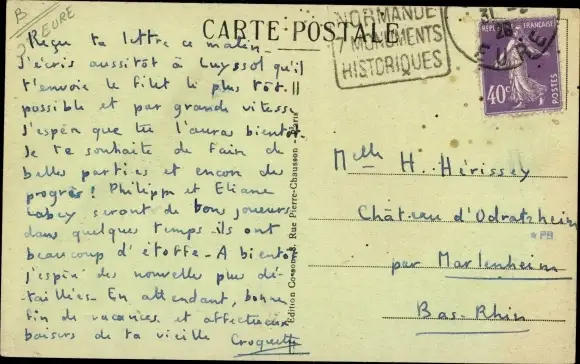 B
EURE
CARTE POSTALE
NORMANDE
7 MONUMENTS
HISTORIQUES
RÉPUBLIQUE FRANÇAISE
40c
POSTES
Reçu ta lettre ce matin.
J'écris aussitôt à Luyssol qu'il
t'envoie le filet le plus tôt
possible et par grande vitesse
J'espère que tu l'auras bientôt.
Je te souhaite de faire de
belles parties et encore des
progrès! Philippe et Eliane
Labey seront de bons joueurs
dans quelques temps ils ont
beaucoup d'étoffe - A bientôt
j'espère des nouvelles plus dé-
taillées - En attendant, bonne
fin de vacances et affectueux
baisers de ta vieille Croquette
Edition Cosson, Rue Pierre-Chausson - Paris
Melle H. Hérissey
Château d'Odratzheim
*PB
par Marlenheim
Bas-Rhin